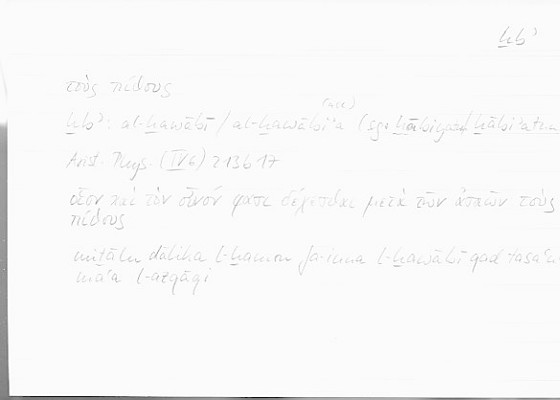 ḫbʾ
τοὺς πίθους
(acc)
ḫbʾ: al-ḫawābī / al-ḫawābiʾa (sg. ḫābiyatu / ḫābiʾatun
Arist. Phys. (IV 6) 213b17
οἷον καὶ τὸν οἶνόν φασι δέχεσθαι μετὰ τῶν ἀσκῶν τοὺς
πίθους
miṯālu ḏālika l-ḫamru fa-inna l-ḫawābī qad tasaʿu
maʿa l-azqāqi